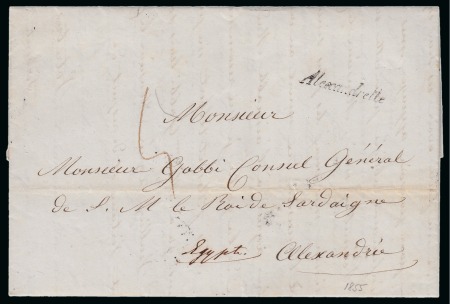 Alexandrette
Monsieur
5
Monsieur Gabbi Consul Général
de S. M le Roi de Sardaigne
Egypte. Alexandrie
1855